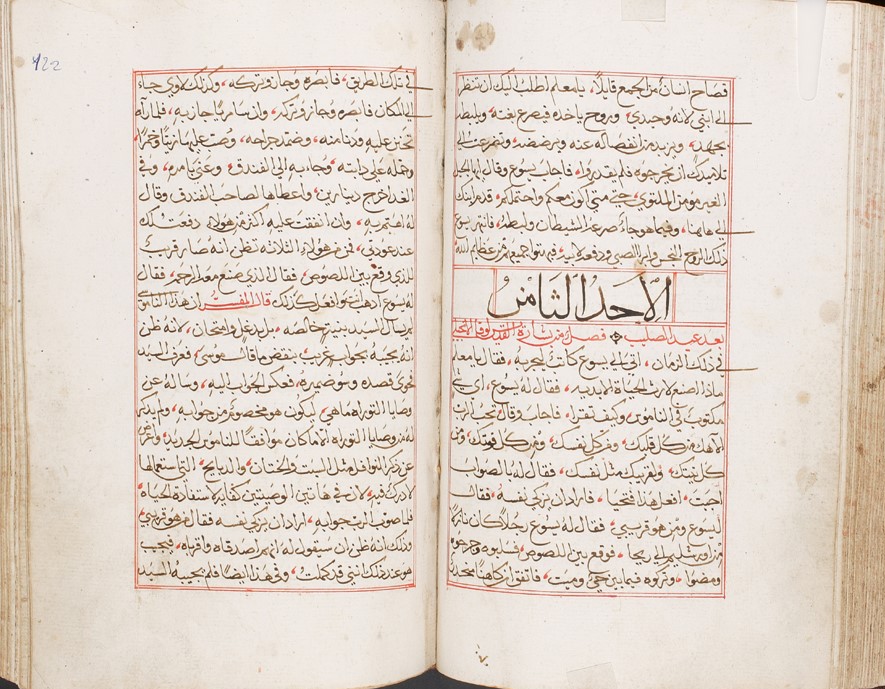 فصاح انسان من الجمع قايلاً، يا معلم اطلب اليك ان تنظر
الى ابني لانه وحيدي، وبروح ياخذه فيصرع بغتة، ويلبطه
بجهد، ويزبد من انفصاله عنه ويرضضه، وتضرعت الى
تلاميذك ان يخرجوه فلم يقدروا، فاجاب يسوع وقال ايها الجيل
الغير مومن الملتوي حتى متى اكون معكم واحتملكم، قدم ابنك
الى هاهنا، وفيما هو جاء صرعه الشيطان ولبطه، فانتهر يسوع
ذلك الروح النجس وابرا الصبي ودفعه لابيه، فبهتوا جميعهم من عظايم الله
الاحد الثامن
بعد عيد الصليب فصل من بشارة القديس لوقا الانجيلي
في ذلك الزمان، اتى الى يسوع كاتب ليجربه، فقال يا معلم
ماذا اصنع لارث الحياة الابديه، فقال له يسوع، اي شي
مكتوب في الناموس وكيف تقرا، فاجاب وقال تحب الرب
الاهك من كل قلبك، ومن كل نفسك، ومن كل قوتك، ومن
كل نيتك، ولقريبك مثل نفسك، فقال له بالصواب
اجبت، افعل هذا فتحيا، فاراد ان يزكي نفسه، فقال
ليسوع ومن هو قريبي، فقال له يسوع رجلاً كان نازلاً
من اورشليم الى ريحا، فوقع بين اللصوص، فسلبوه وجرحوه
ومضوا، وتركوه فيما بين حي وميت، فاتفق ان كاهنًا منحدرًا
422
في تلك الطريق، فابصره وجاز وتركه، وكذلك لاوي جاء
الى المكان فابصره وجاز وتركه، وان سامريًا جاز به، فلما رآه
تحنن عليه ودنا منه، وضمد جراحه، وصب عليها زيتًا وخمرًا
وحمله على دابته، وجاء به الى الفندق، وعني بامره، وفي
الغد اخرج دينارين، واعطاها لصاحب الفندق وقال
له اهتم به، وان انفقت عليه اكثر من هولاي دفعت لك
عند عودتي، فمن من هولاء الثلاثة تظن انه صار قريب
للذي وقع بين اللصوص، فقال الذي صنع معه الرحمه، فقال
له يسوع اذهب انت وافعل كذلك قال المفسر ان هذا الناموسي
لم يسال السيد بنية خالصه، بل بدغل وامتحان، لانه ظن
انه يجيبه بجواب غريب ينقض ما قاله موسى، فعرف السيد
فحوى قصده وسو ضميره، فعكس الجواب اليه، وساله عن
وصايا التوراه ما هي ليكون هو مخصوم من جوابه، ولم يذكر
له من وصايا التوراه الا ما كان موافقًا للناموس الجديد، واعرض
عن ذكر النوافل مثل السبت والختان، والذبايح، التي استعملها
لادراك فيه، لان في هاتين الوصيتين كفايه لاستفادة الحياه
فلما صوب الرب جوابه، اراد ان يزكي نفسه فقال من هو قريبي
وذلك انه ظن ان سيقول له انهم اصدقاه واقرباه، فيجب
هو عند ذلك انني قد كملت، وفي هذا ايضًا فلم يجيبه السيد
٧